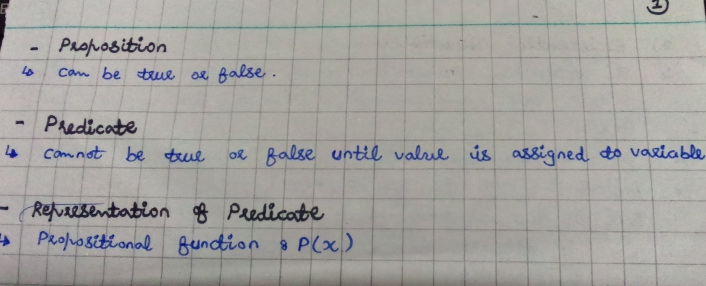 1
- Proposition
↳ can be true or false.
- Predicate
↳ cannot be true or false until value is assigned to variable
- Representation of Predicate
↳ Propositional function : P(x)